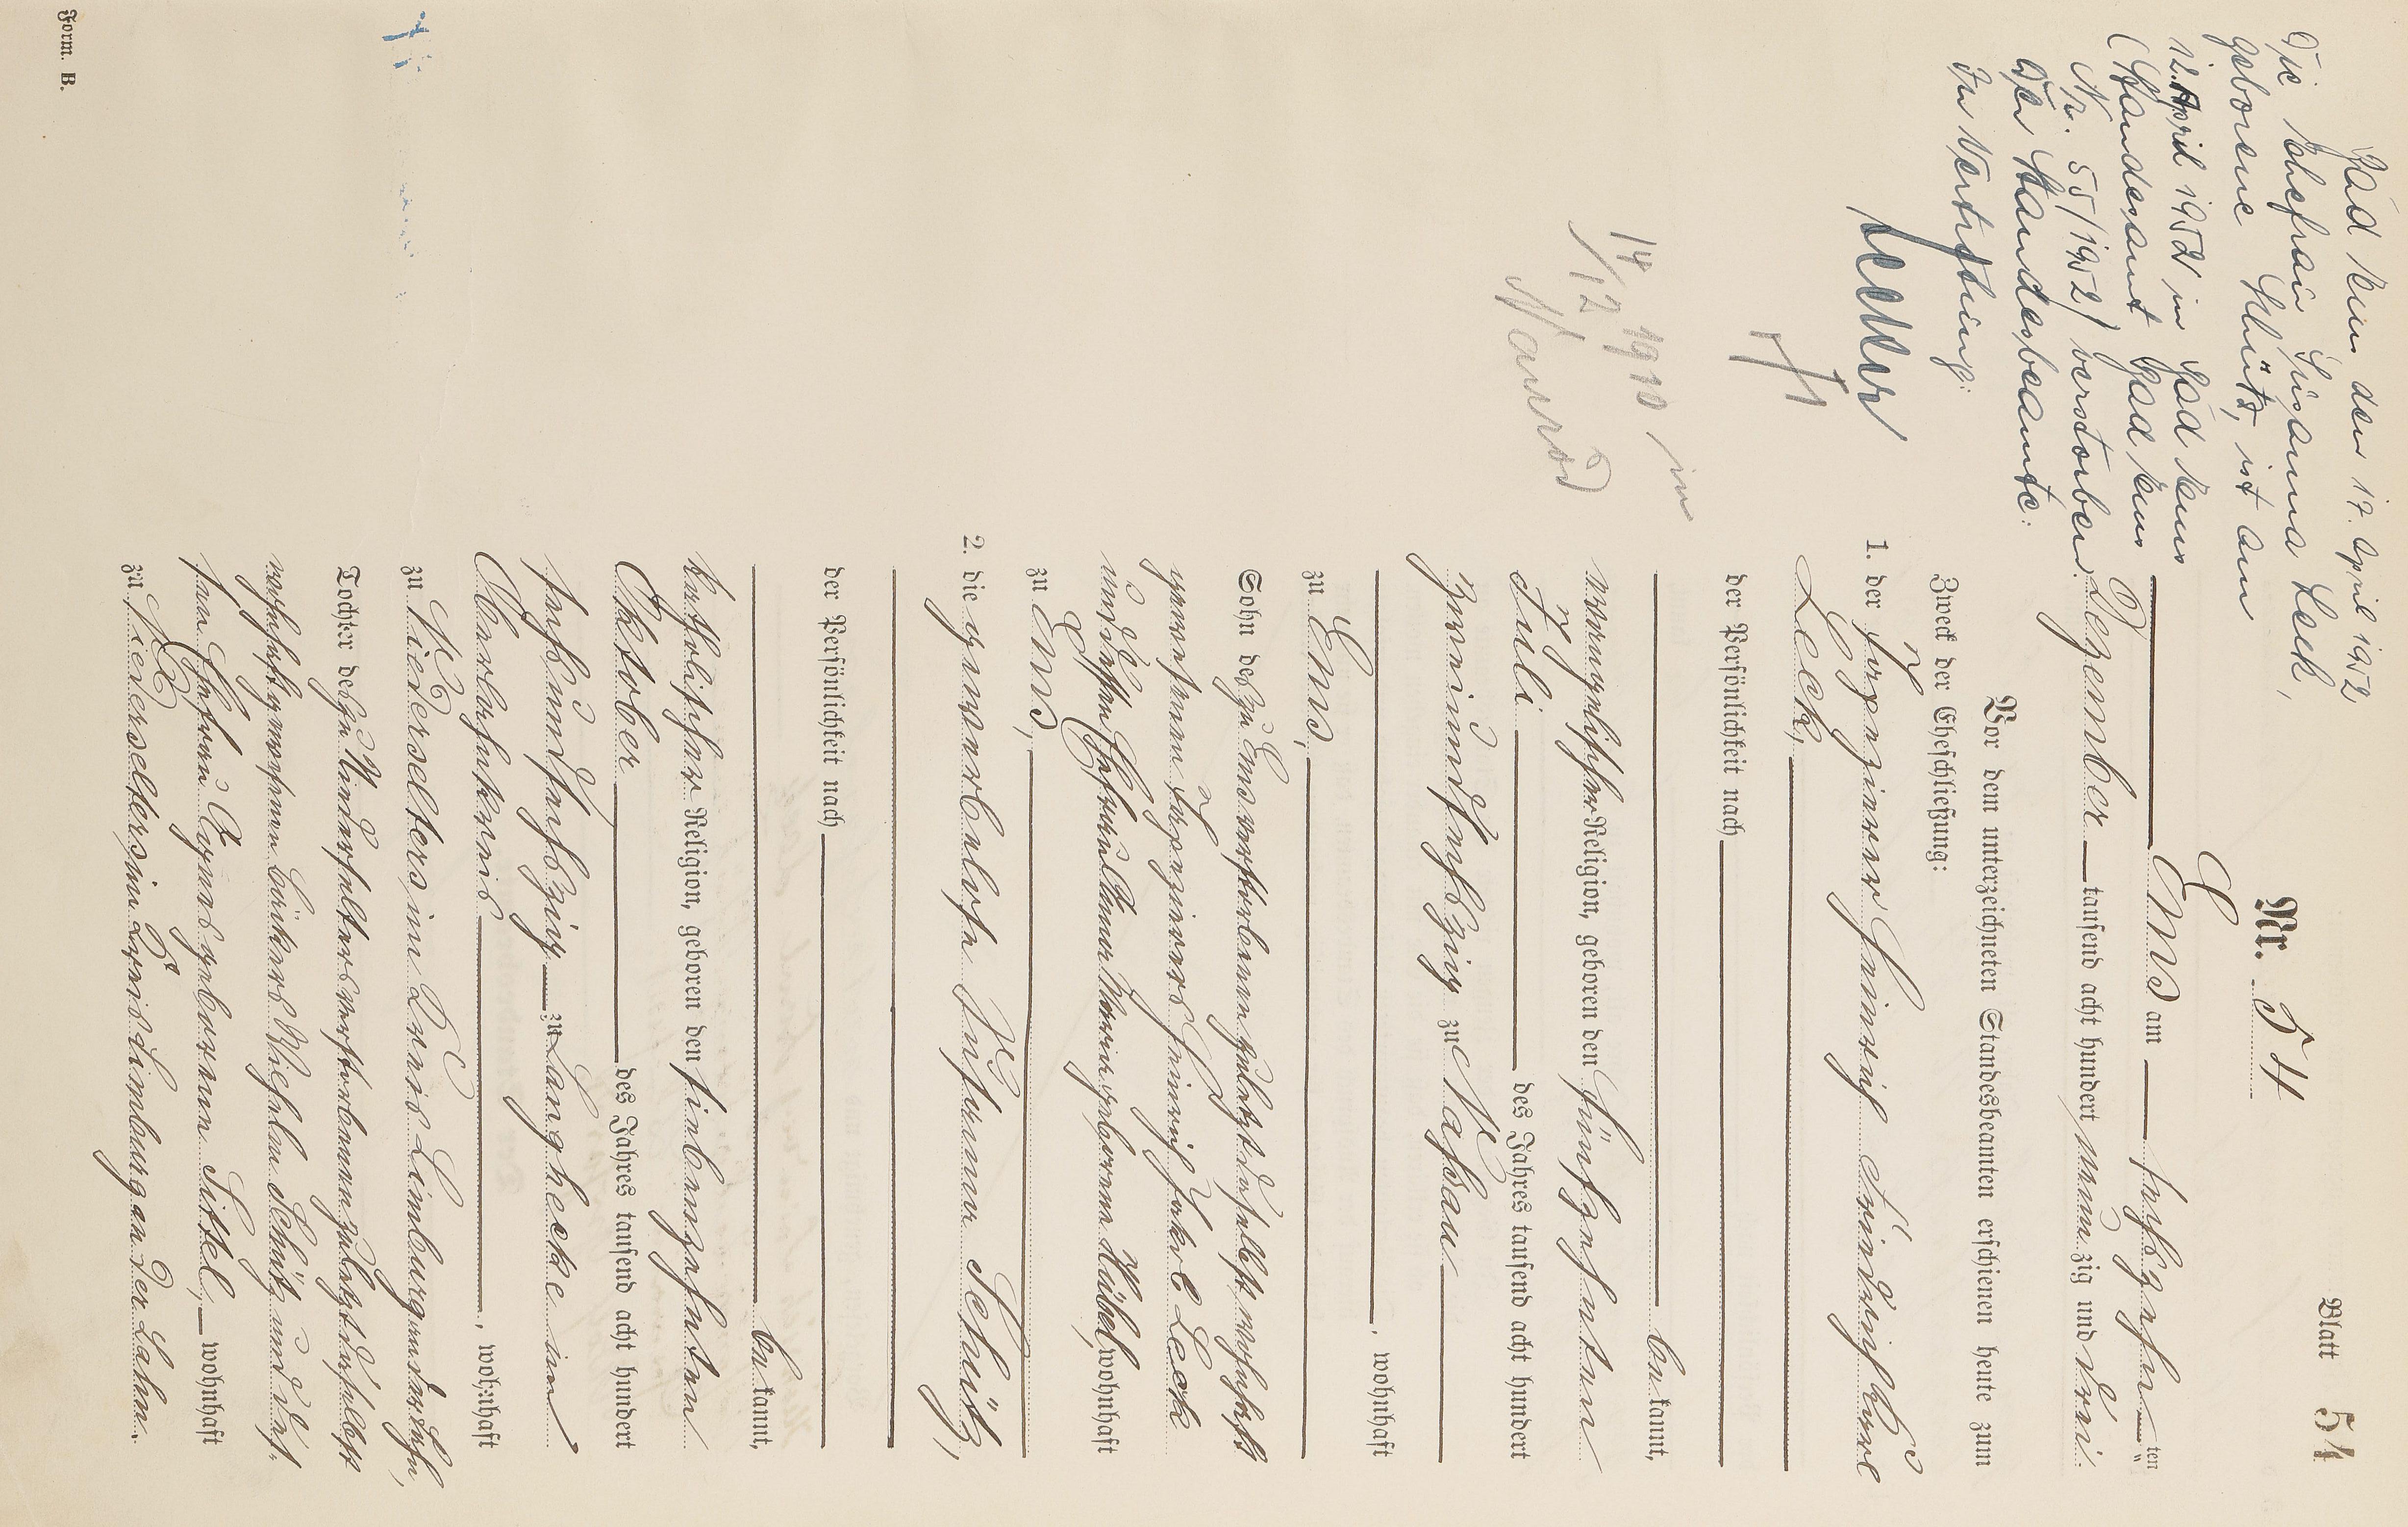 Blatt 54
Nr. 54
Ems am sechszehnten
Dezember tausend acht hundert neunzig und drei.
Vor dem unterzeichneten Standesbeamten erschienen heute zum
Zweck der Eheschließung:
1. der Heinrich Friedrich Karl
Leck,
der Persönlichkeit nach
bekannt,
evangelischer Religion, geboren den fünfzehnten
Juli des Jahres tausend acht hundert
zweiundsechszig zu Nassau
, wohnhaft
zu Ems,
Sohn des zu Ems verstorbenen zuletzt daselbst wohnhaft
gewesenen Heinrich Jakob Leck
und dessen Ehefrau geborene Hübel, wohnhaft
zu Ems,
2. die gewerblose Susanna Schütz,
der Persönlichkeit nach
bekannt,
katholischer Religion, geboren den siebenzehnten
Oktober des Jahres tausend acht hundert
sechsundsechszig zu Langhecke im
Oberlahnkreis, wohnhaft
zu Niederselters im Kreis Limburg an der Lahn,
Tochter des zu Niederselters verstorbenen zuletzt daselbst
wohnhaft gewesenen Bäckers Wilhelm Schütz und des-
sen Ehefrau Agnes geborenen Sittel, wohnhaft
zu Niederselters im Kreis Limburg an der Lahn.
Bad Ems den 17. April 1952
Die Ehefrau Susanna Leck,
geborene Schütz, ist am
12. April 1952 in Bad Ems
(Standesamt Bad Ems
Nr. 55/1952) verstorben.
Der Standesbeamte:
In Vertretung:
14/12 1910 in
Naurod
Form. B.